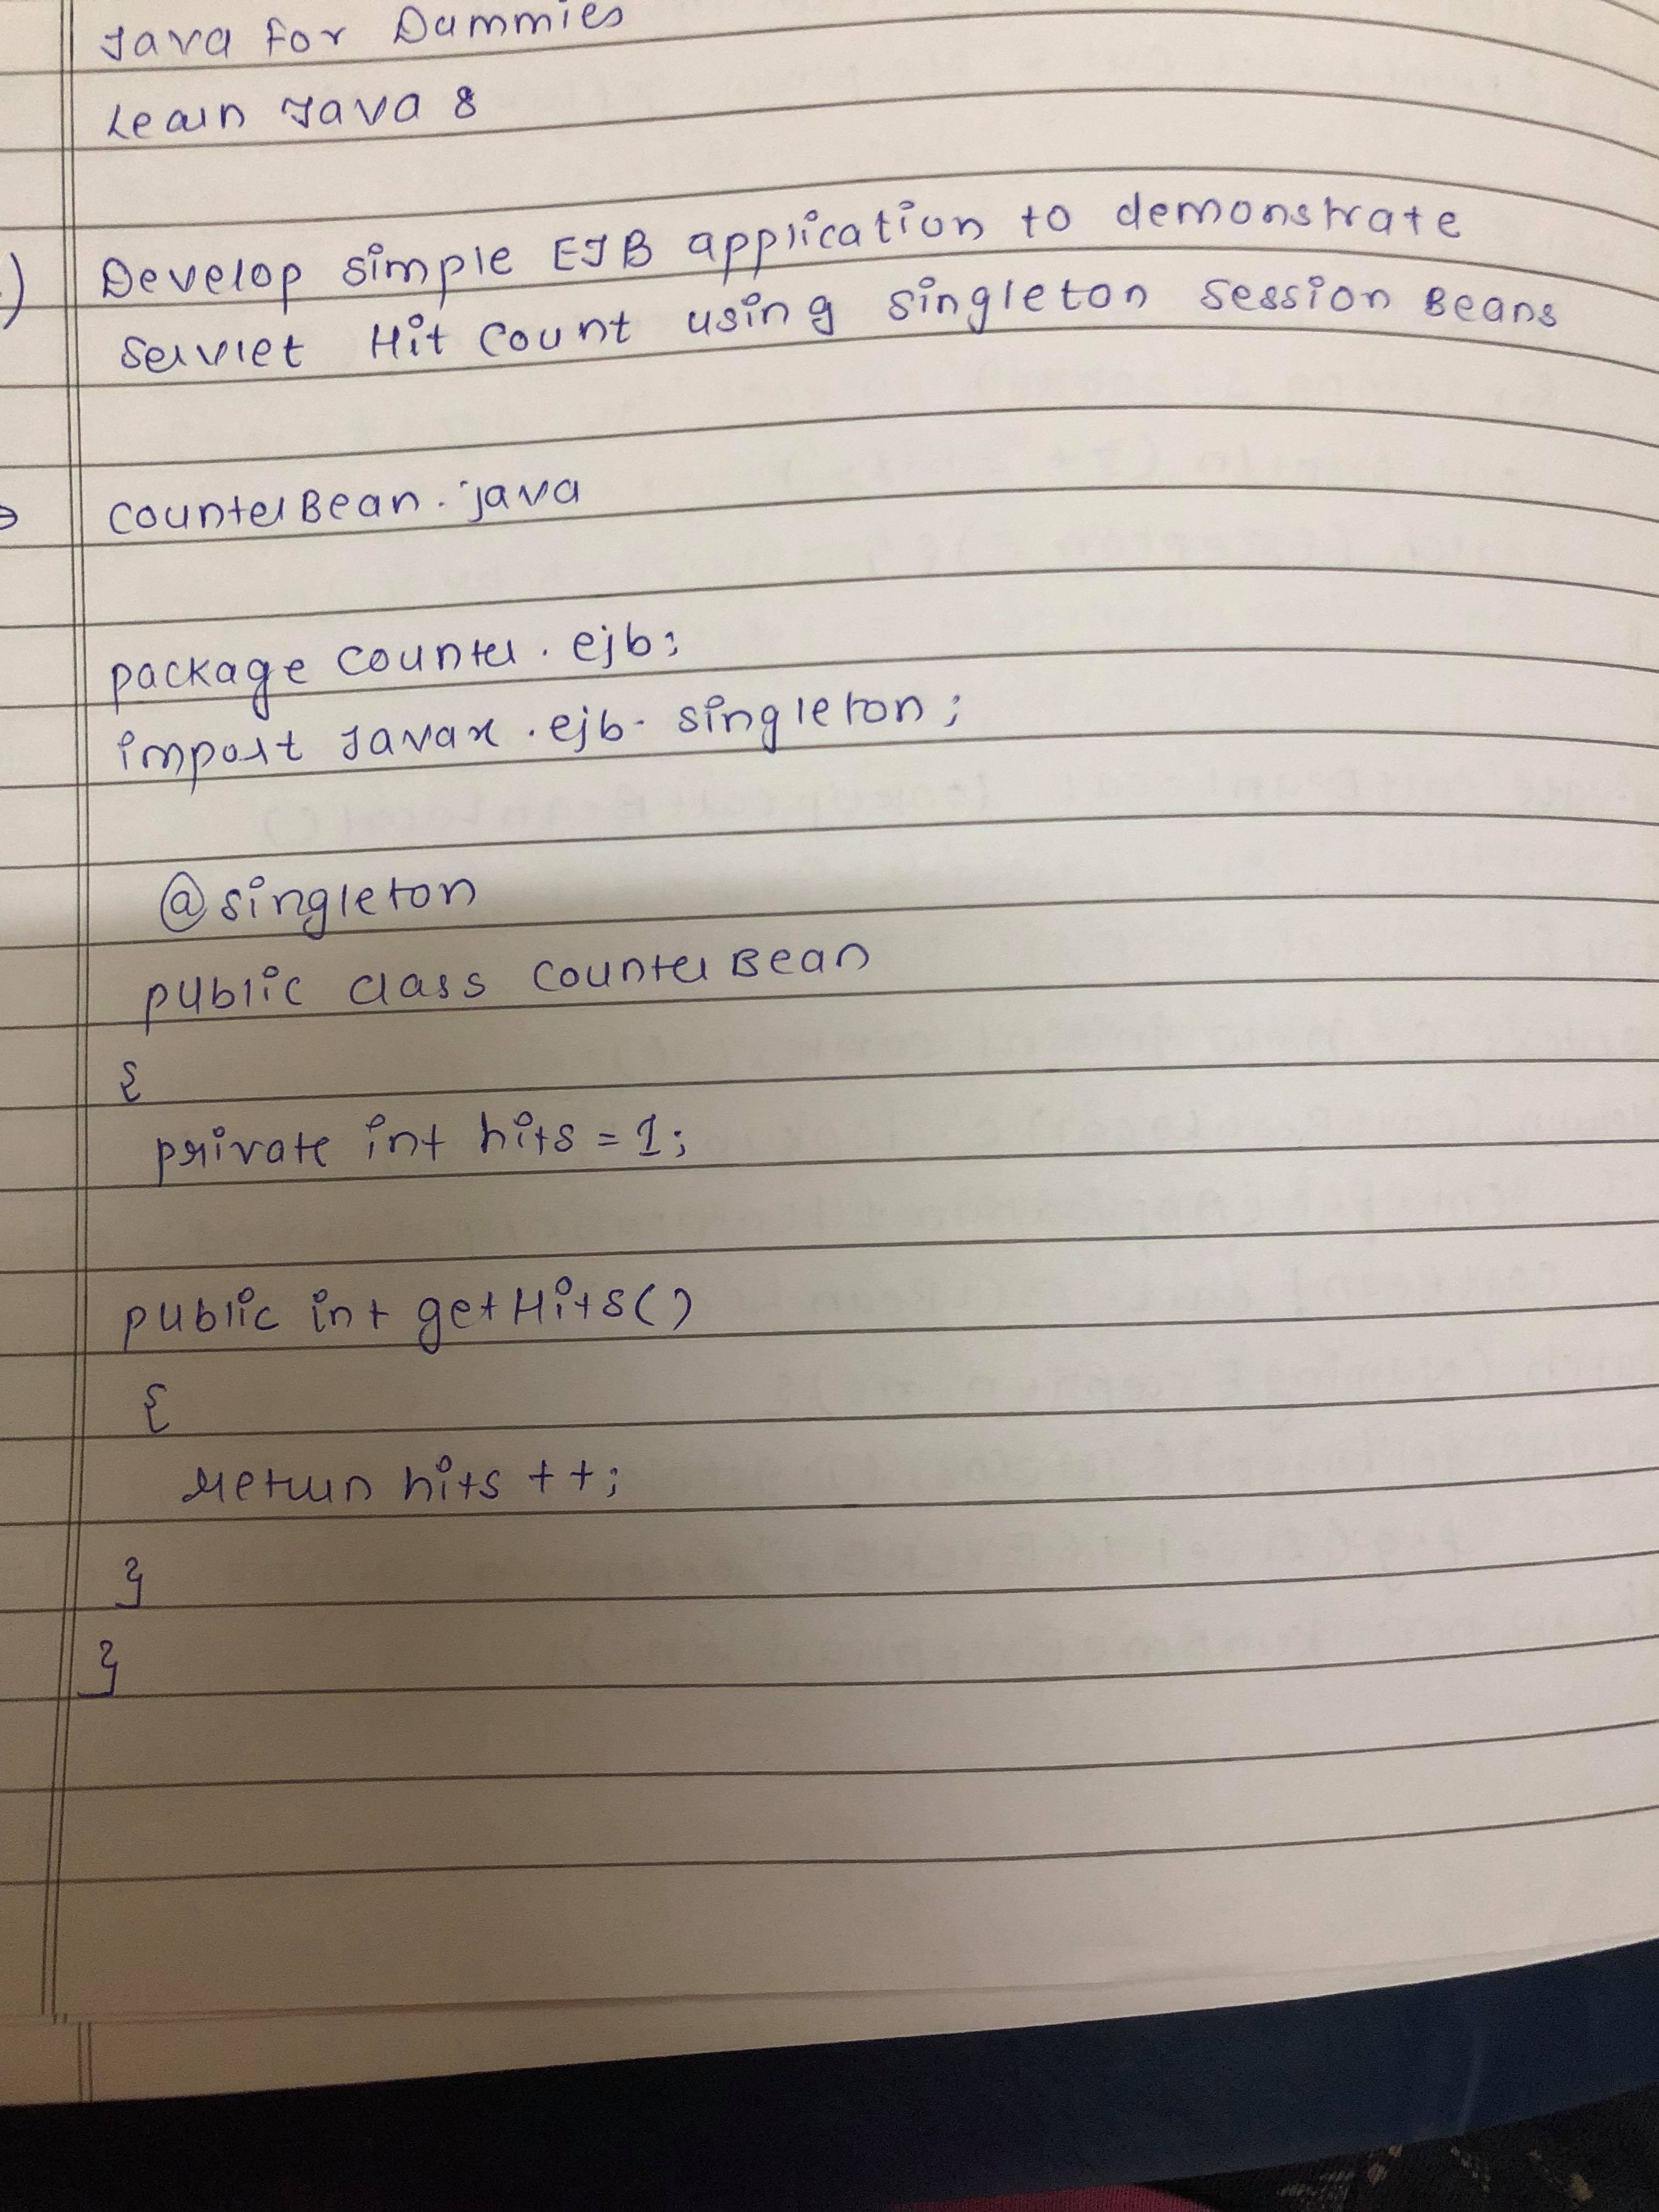 Java For Dummies
Learn Java 8
) Develop simple EJB application to demonstrate
Servlet Hit Count using singleton session Beans
CounterBean.java
package counter.ejb;
import Javax.ejb.singleton;
@singleton
public class CounterBean
{
private int hits = 1;
public int getHits()
{
return hits ++;
}
}